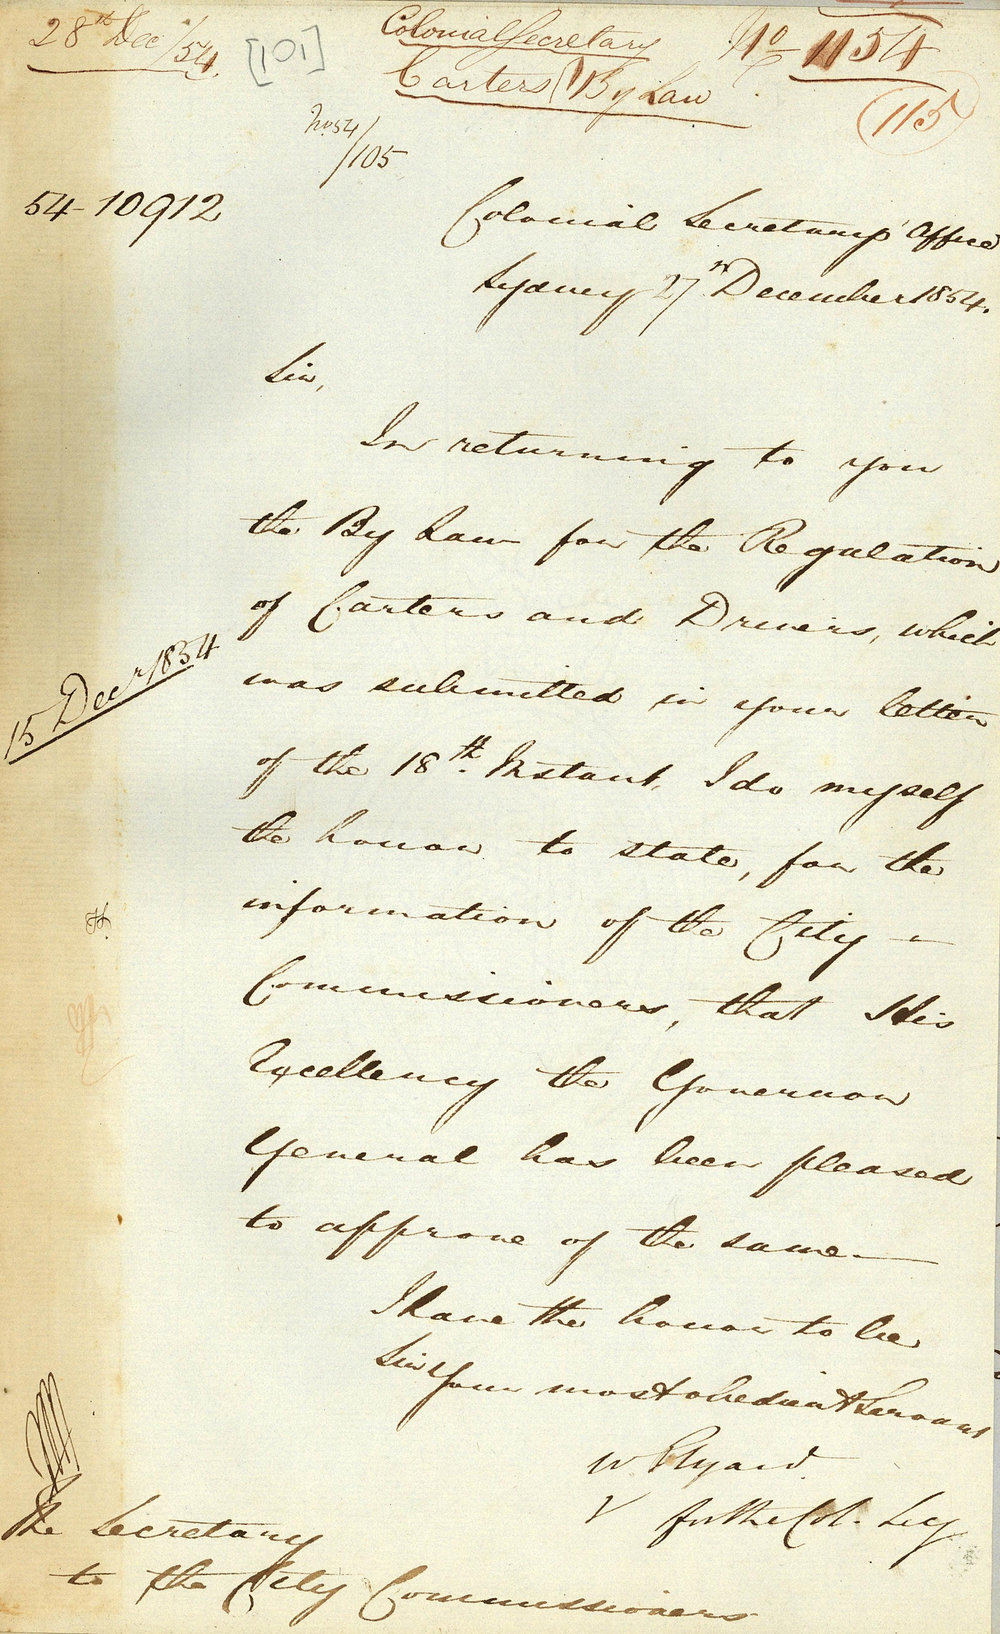 28th Dec /54.
[101]
Colonial Secretary
Carters By Law
No 1154
115
No 54/105
54-10912
Colonial Secretary's Office
Sydney 27th December 1854.
Sir,
In returning to you
the By Law for the Regulation
of Carters and Drivers, which
15 Decr 1854
was submitted in your letter
of the 18th Instant, I do myself
the honor to state, for the
information of the City
Commissioners, that His
Excellency the Governor
General has been pleased
to approve of the same—
I have the honor to be
Sir
Your most obedient Servant
W Elyard
for the Col. Secy
The Secretary
to the City Commissioners